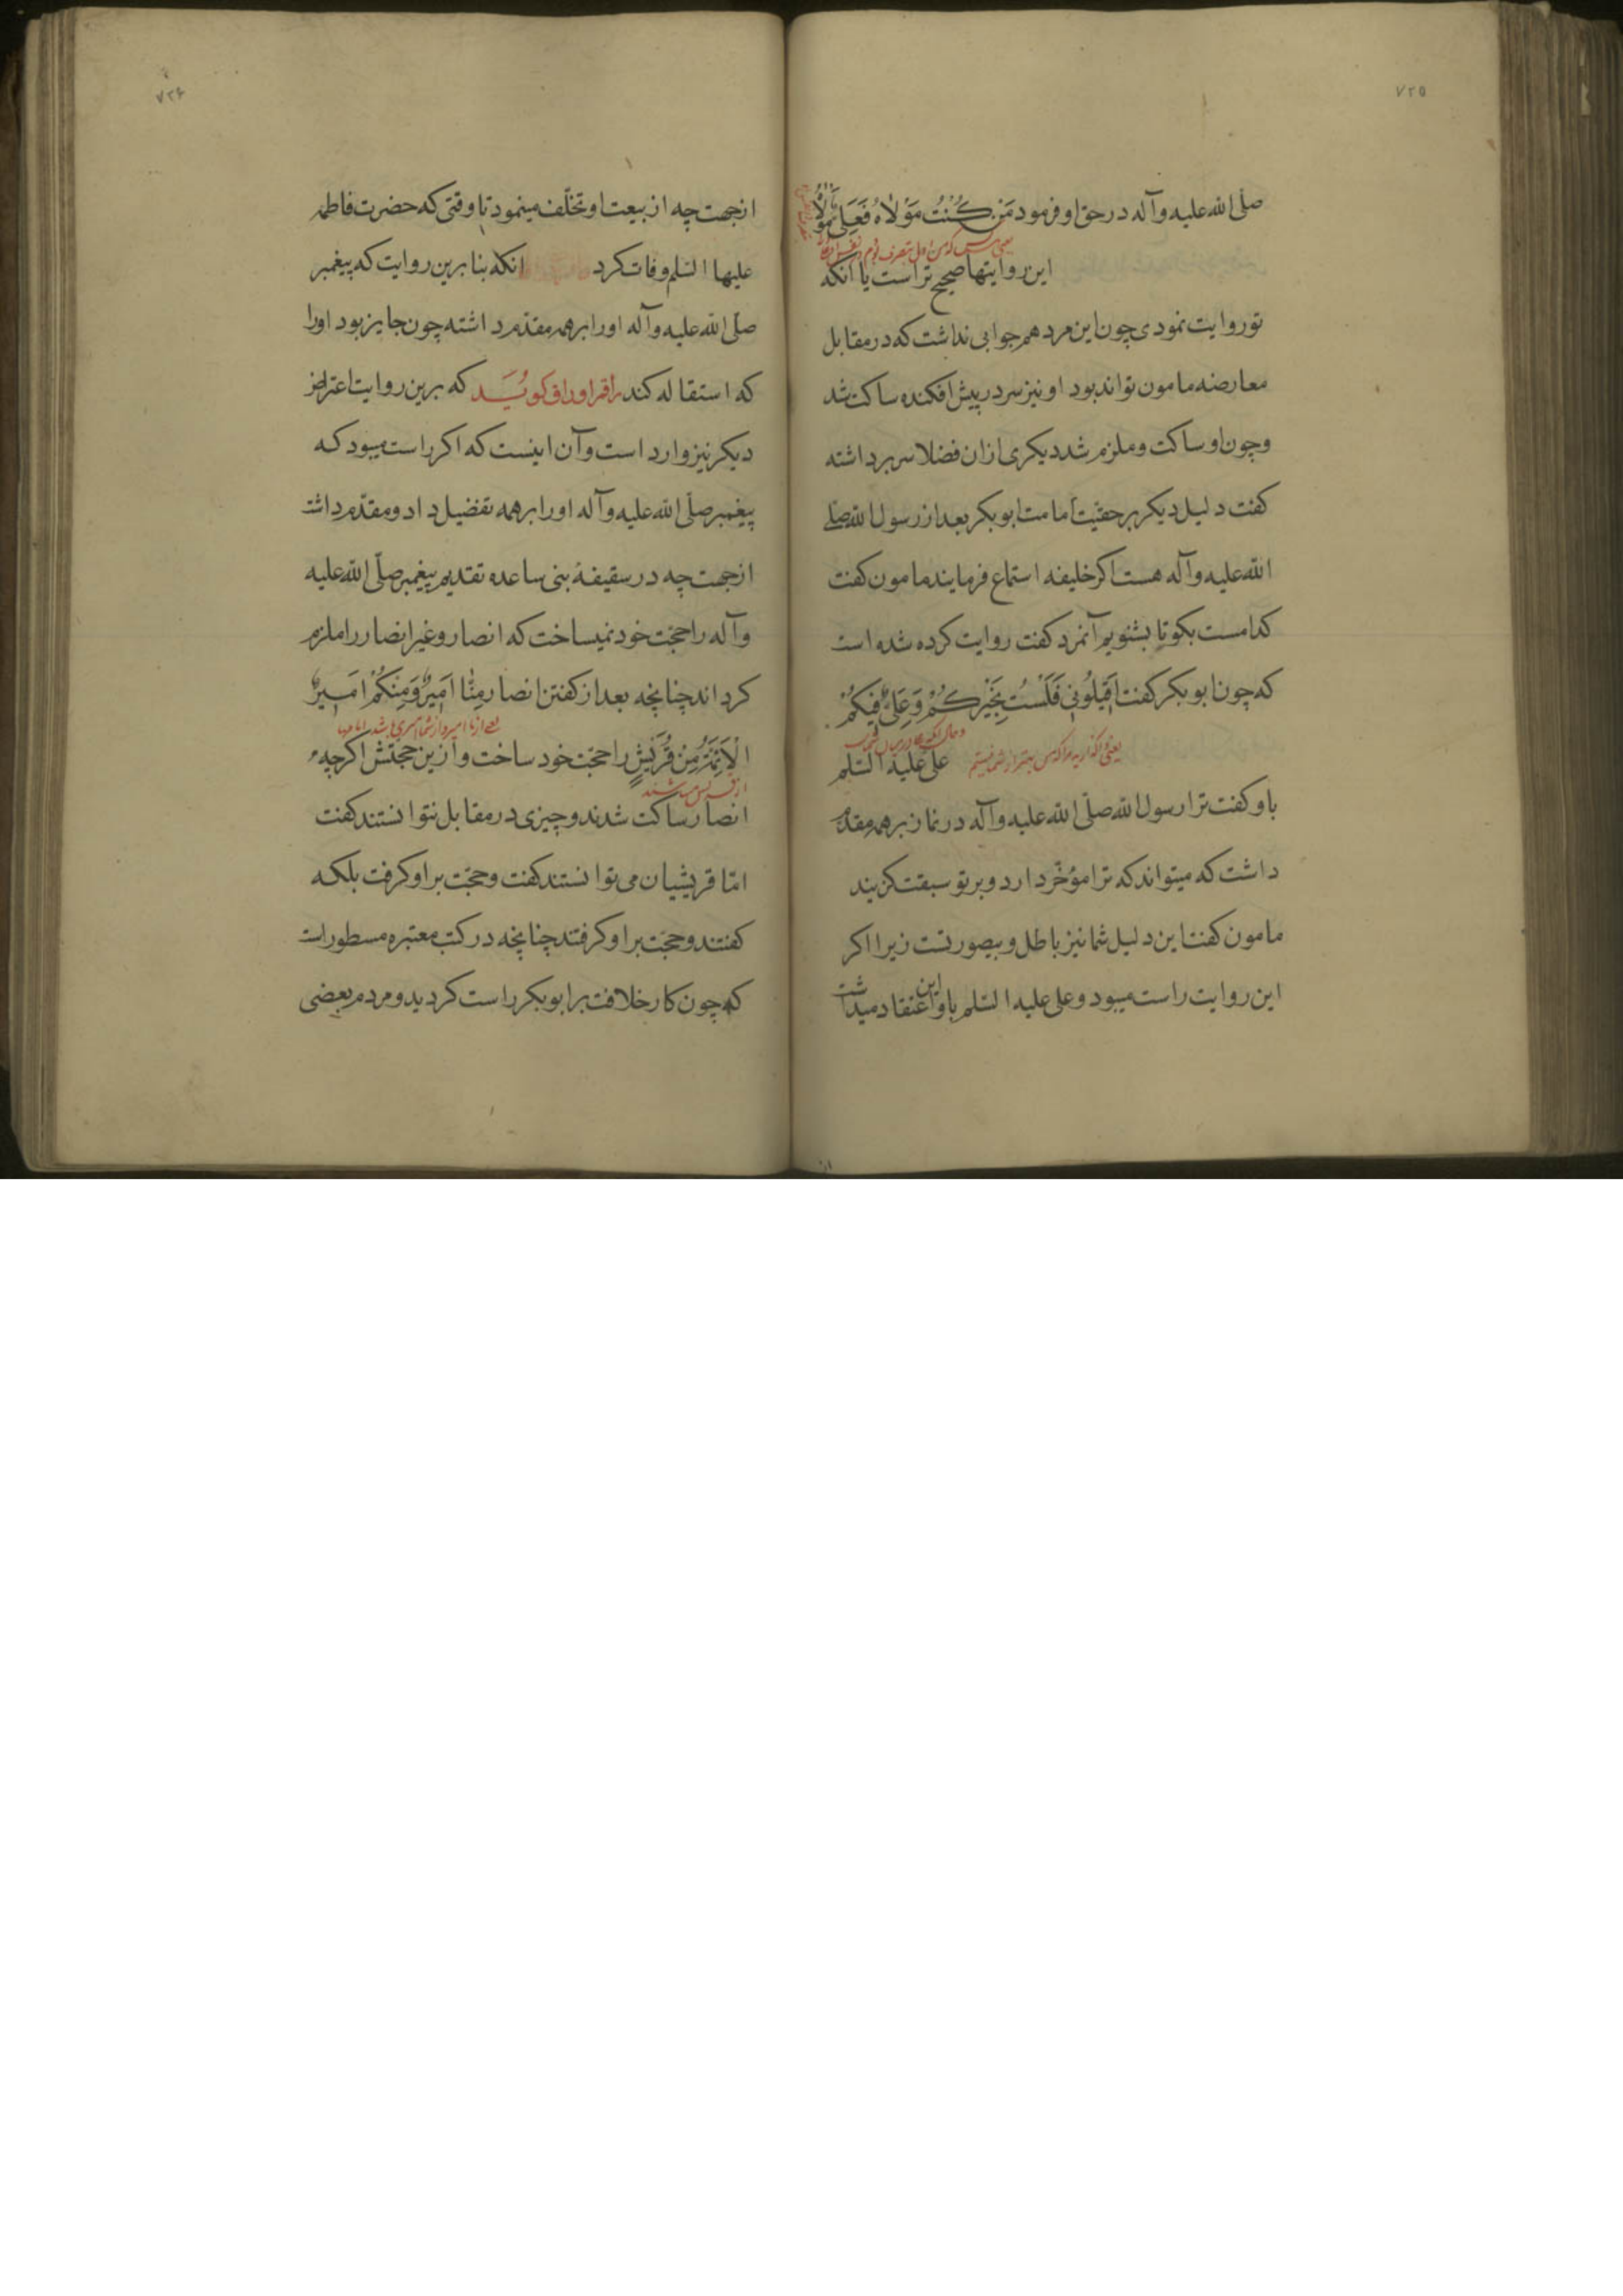 ٧٢٥
صلّی الله علیه وآله در حق او فرمود مَن کُنْتُ مَوْلاهُ فَعَلِیٌّ مَوْلاهُ
این روایتها صحیح تر است یا آنکه
تو روایت نمودی چون این مرد هم جوابی نداشت که در مقابل
معارضه مامون تواند بود او نیز سر در پیش افکنده ساکت شد
وچون او ساکت وملزم شد دیکری ازان فضلا سر برداشته
کفت دلیل دیکر بر حقیّت امامت ابو بکر بعد از رسول الله صلی
الله علیه وآله هست اکر خلیفه استماع فرمایند مامون کفت
کدامست بکو تا بشنویم آنمرد کفت روایت کرده شده است
که چون ابو بکر کفت اَقیلُونی فَلَسْتُ بِخَیْرِکُمْ وَعَلِیٌّ فیکُمْ
یعنی واکذارید مرا که من بهتر از شما نیستم
علی علیه السّلم
باو کفت ترا رسول الله صلّی الله علیه وآله در نماز برهمه مقدّم
داشت که میتواند که ترا مؤخّر دارد وبر تو سبقت کزیند
مامون کفت این دلیل شما نیز باطل وبیصورتست زیرا اکر
این روایت راست میبود وعلی علیه السّلم باو این اعتقاد میداشت
٧٢۶
ازجهت چه از بیعت او تخلّف مینمود تا وقتی که حضرت فاطمه
علیها السّلم وفات کرد انکه بنا برین روایت که پیغمبر
صلّی الله علیه وآله اورا برهمه مقدّم داشته چون جایز بود اورا
که استقاله کند راقم اوراق کویَد که برین روایت اعتراض
دیکر نیز وارد است وآن اینست که اکر راست میبود که
پیغمبر صلّی الله علیه وآله اورا برهمه تفضیل داد ومقدّم داشت
ازجهت چه در سقیفهٔ بنی ساعده تقدیم پیغمبر صلّی الله علیه
وآله را حجّت خود نمیساخت که انصار وغیر انصار را ملزم
کرداند چنانچه بعد از کفتن انصار مِنّا اَمیرٌ وَمِنْکُمْ اَمیرٌ
یعنی از ما امیری واز شما امیری باشد
اَلْاَئِمَّةُ مِنْ قُرَیْشٍ را حجّت خود ساخت وازین حجّتش اکرچه
از قریش میباشند
انصار ساکت شدند وچیزی در مقابل نتوانستند کفت
امّا قریشیان می توانستند کفت وحجّت بر او کرفت بلکه
کفتند وحجّت بر او کرفتند چنانچه در کتب معتبره مسطور است
که چون کار خلافت بر ابو بکر راست کردید ومردم بعضی